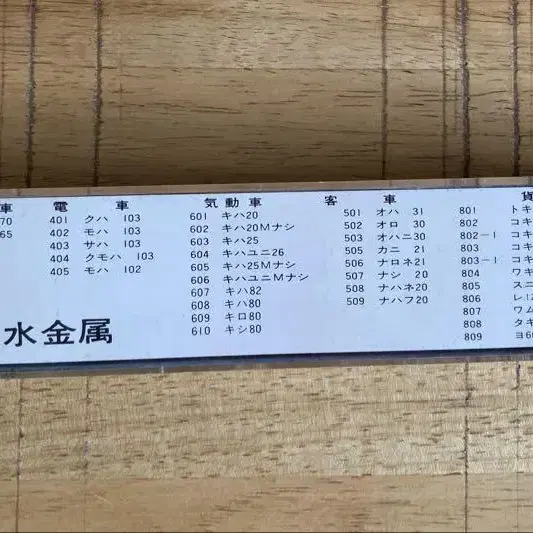 車 電車 気動車 客車 貨
70 401 クハ 103 601 キハ20 501 オハ 31 801 トキ
65 402 モハ 103 602 キハ20Mナシ 502 オロ 30 802 コキ
403 サハ 103 603 キハ25 503 オハニ30 802-1 コキ
404 クモハ 103 604 キハユニ26 505 カニ 21 803 コキ
405 モハ 102 605 キハ25Mナシ 506 ナロネ21 803-1 コキ
606 キハユニMナシ 507 ナシ 20 804 ワキ
607 キハ82 508 ナハネ20 805 スニ
608 キハ80 509 ナハフ20 806 レ12
609 キロ80 807 ワム
610 キシ80 808 タキ
809 ヨ6
水金属